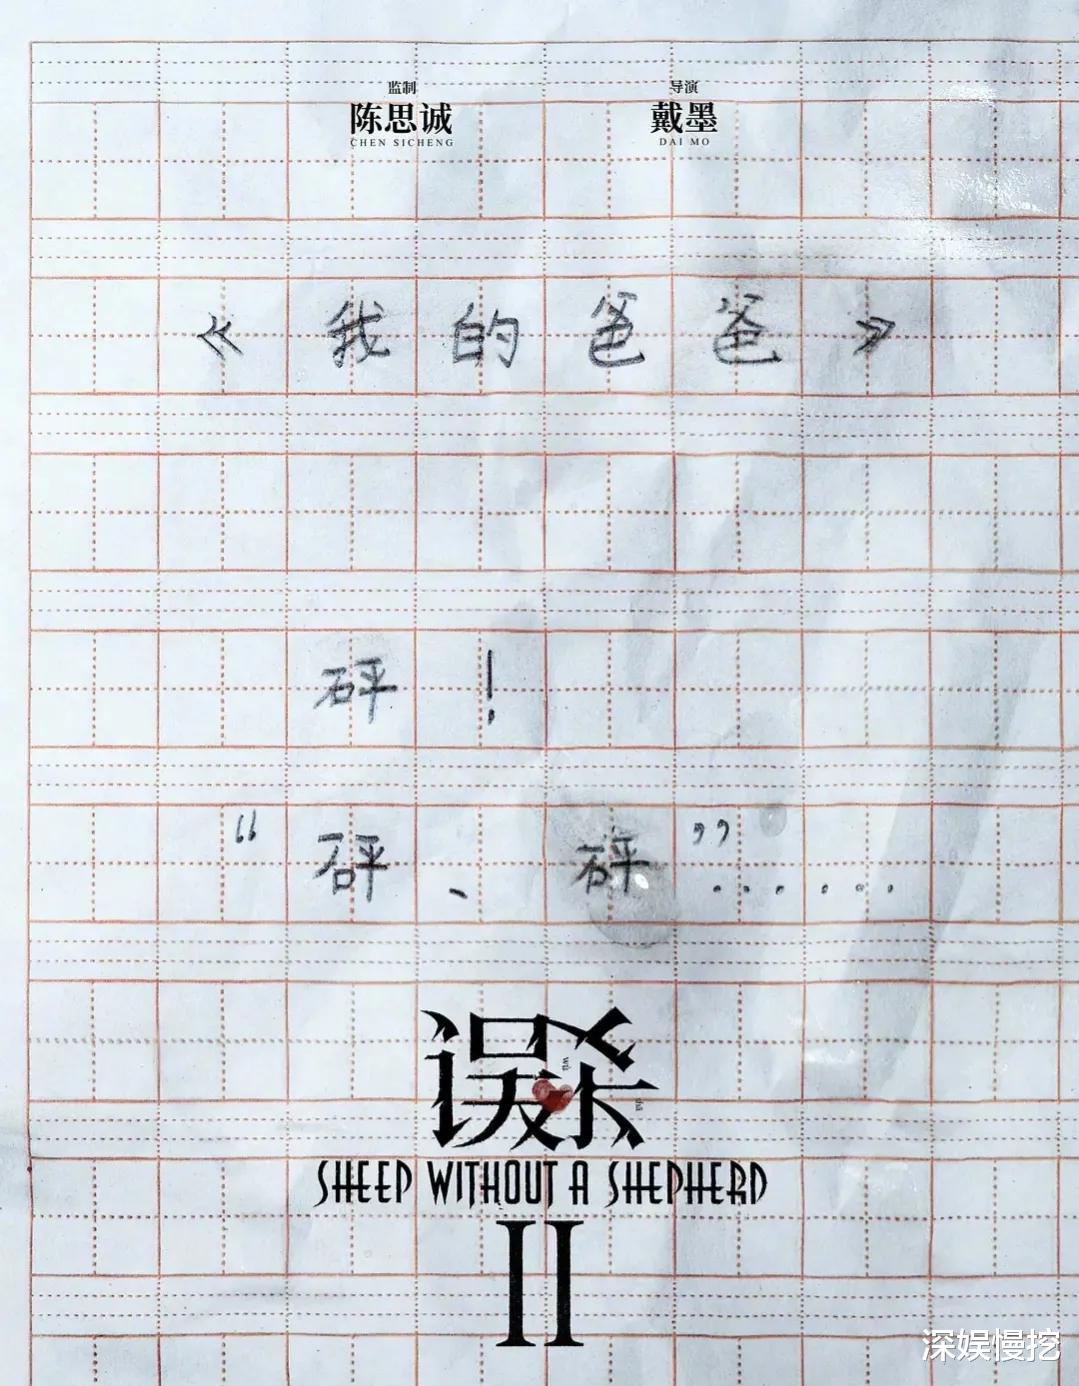 监制 导演
陈思诚 戴墨
CHEN SICHENG DAI MO
《我的爸爸》
砰！
“砰、砰”……
误杀
wù shā
SHEEP WITHOUT A SHEPHERD
II
深娱慢挖